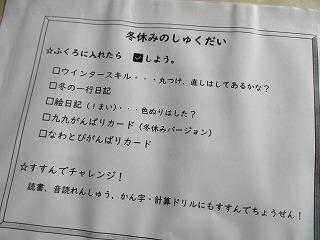 冬休みのしゅくだい
☆ふくろに入れたら ☑しよう。
□ウインタースキル・・・丸つけ、直しはしてあるかな?
□冬の一行日記
□絵日記(1まい)・・・色ぬりはした?
□九九がんばりカード(冬休みバージョン)
□なわとびがんばりカード
☆すすんでチャレンジ!
読書、音読れんしゅう、かん字・計算ドリルにもすすんでちょうせん!